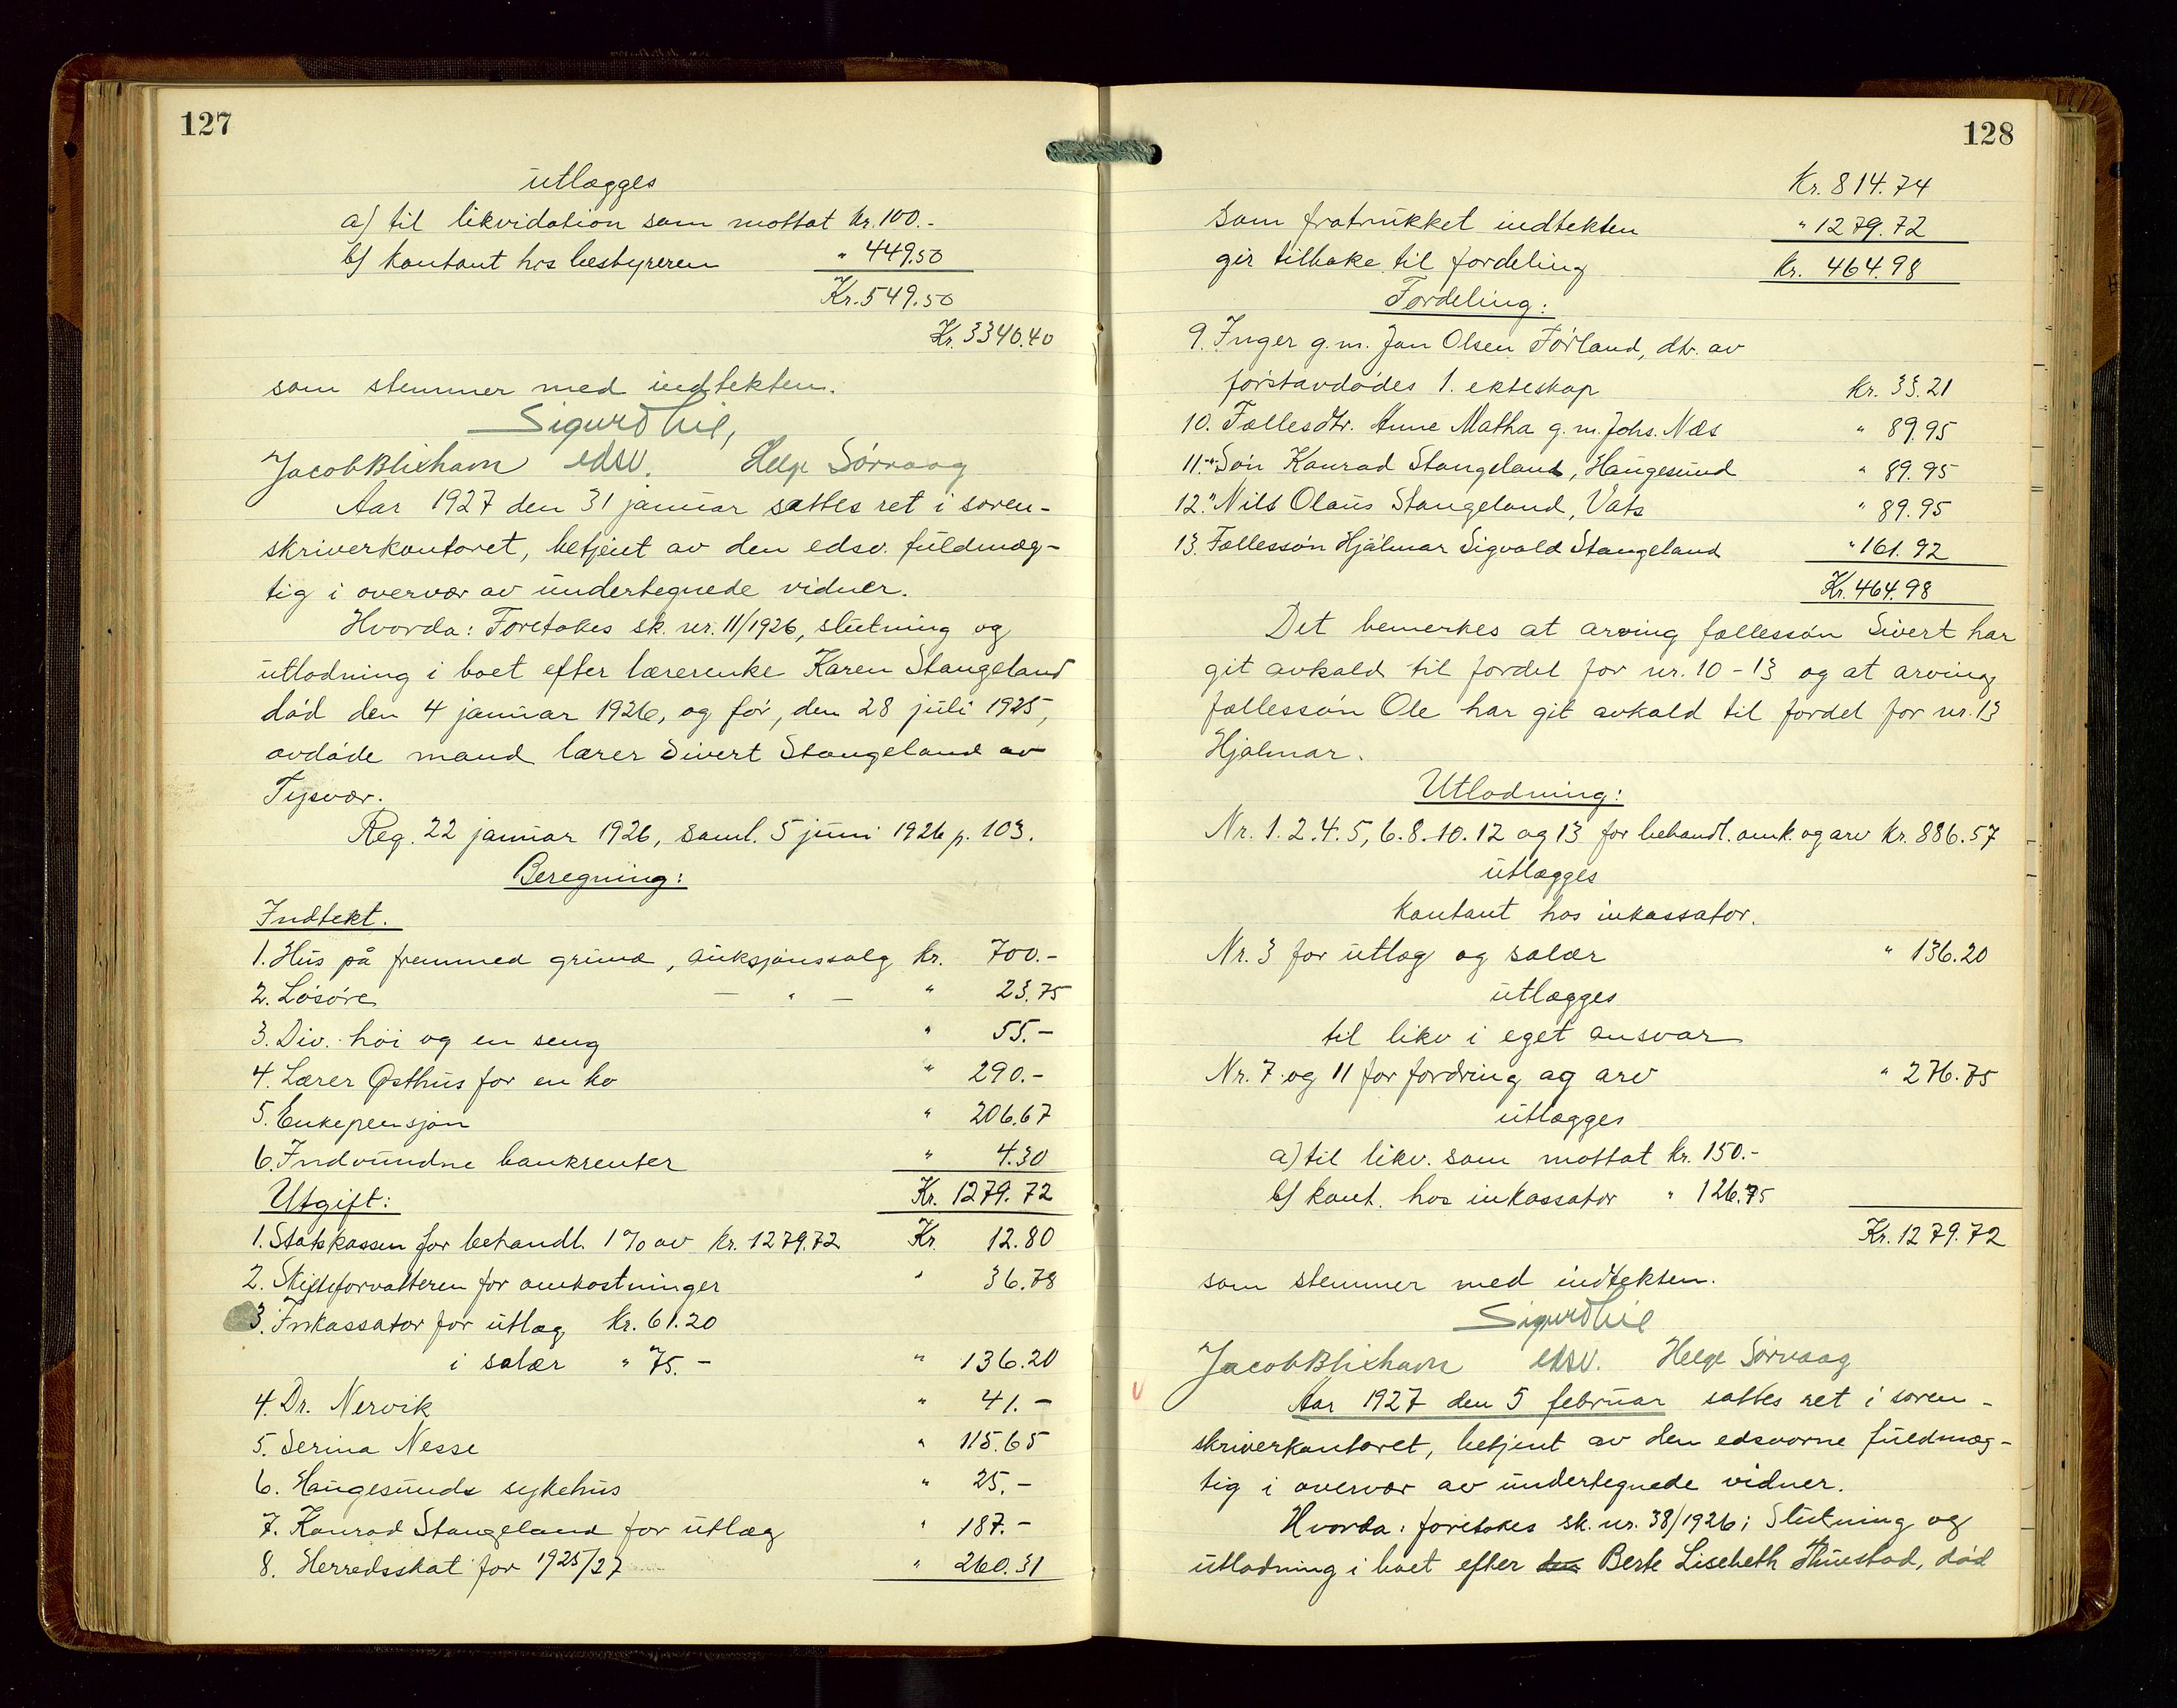 127
utlægges
a) til likvidation som mottat kr. 100.-
b) kontant hos bestyreren " 449.50
Kr. 549.50
Kr. 3340.40
som stemmer med indtekten.
Sigurd
Jacob Blixhavn edsv. Helge Sørvaag
Aar 1927 den 31 januar sattes ret i soren-
skriverkontoret, betjent av den edsv. fuldmæg-
tig i overvær av undertegnede vidner.
Hvorda: Foretokes sk. nr. 11/1926, slutning og
utlodning i boet efter lærerenke Karen Stangeland
død den 4 januar 1926, og før, den 28 juli 1925,
avdøde mand lærer Sivert Stangeland av
Tysvær.
Reg. 22 januar 1926, saml. 5 juni 1926 p. 103.
Beregning:
Indtekt.
1. Hus på fremmed grund, auksjonssalg kr. 700.-
2. Løsøre — " — " 23.75
3. Div. høi og en seng " 55.-
4. Lærer Østhus for en ko " 290.-
5. Enkepensjon " 206.67
6. Indvundne bankrenter " 4.30
Utgift: Kr. 1279.72
1. Statskassen for behandl. 1 % av kr. 1279.72 Kr. 12.80
2. Skifteforvalteren for omkostninger " 36.78
3. Inkassator for utlæg kr. 61.20
i salær " 75.- " 136.20
4. Dr. Nervik " 41.-
5. Serina Nesse " 115.65
6. Haugesunds sykehus " 25.-
7. Konrad Stangeland for utlæg " 187.-
8. Herredsskat for 1925/27 " 260.31
128
Kr. 814.74
som fratrukket indtekten " 1279.72
gir tilbake til fordeling Kr. 464.98
Fordeling:
9. Inger g.m. Jan Olsen Førland, dtr. av
førstavdødes 1. ekteskap Kr. 33.21
10. Fællesdtr. Anne Matha g.m. Johs. Næs " 89.95
11. " Søn Konrad Stangeland, Haugesund " 89.95
12. " Nils Olaus Stangeland, Vats " 89.95
13. Fællessøn Hjalmar Sigvald Stangeland " 161.92
Kr. 464.98
Det bemerkes at arving fællessøn Sivert har
git avkald til fordel for nr. 10 - 13 og at arving
fællessøn Ole har git avkald til fordel for nr. 13
Hjalmar.
Utlodning:
Nr. 1. 2. 4. 5, 6. 8. 10. 12 og 13 for behandl. omk. og arv Kr. 886.57
utlægges
kontant hos inkassator.
Nr. 3 for utlæg og salær " 136.20
utlægges
til likv i eget ansvar
Nr. 7 og 11 for fordring og arv " 276.75
utlægges
a) til likv. som mottat kr. 150.-
b) kont. hos inkassator " 126.75
Kr. 1279.72
som stemmer med indtekten.
Sigurd
Jacob Blixhavn edsv. Helge Sørvaag
Aar 1927 den 5 februar sattes ret i soren-
skriverkontoret, betjent av den edsvorne fuldmæg-
tig i overvær av undertegnede vidner.
Hvorda: foretokes sk. nr. 38/1926; Slutning og
utlodning i boet efter Berte Lisebeth Thuestad, død